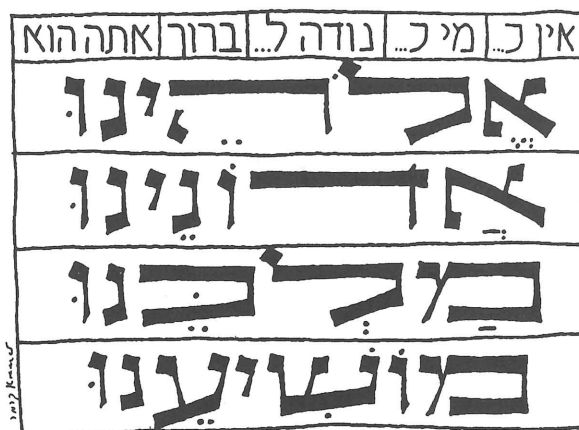 אין כ... מי כ... נודה ל... ברוך אתה הוא
אֱלֹהֵינוּ
אֲדוֹנֵינוּ
מַלְכֵּנוּ
מוֹשִׁיעֵנוּ